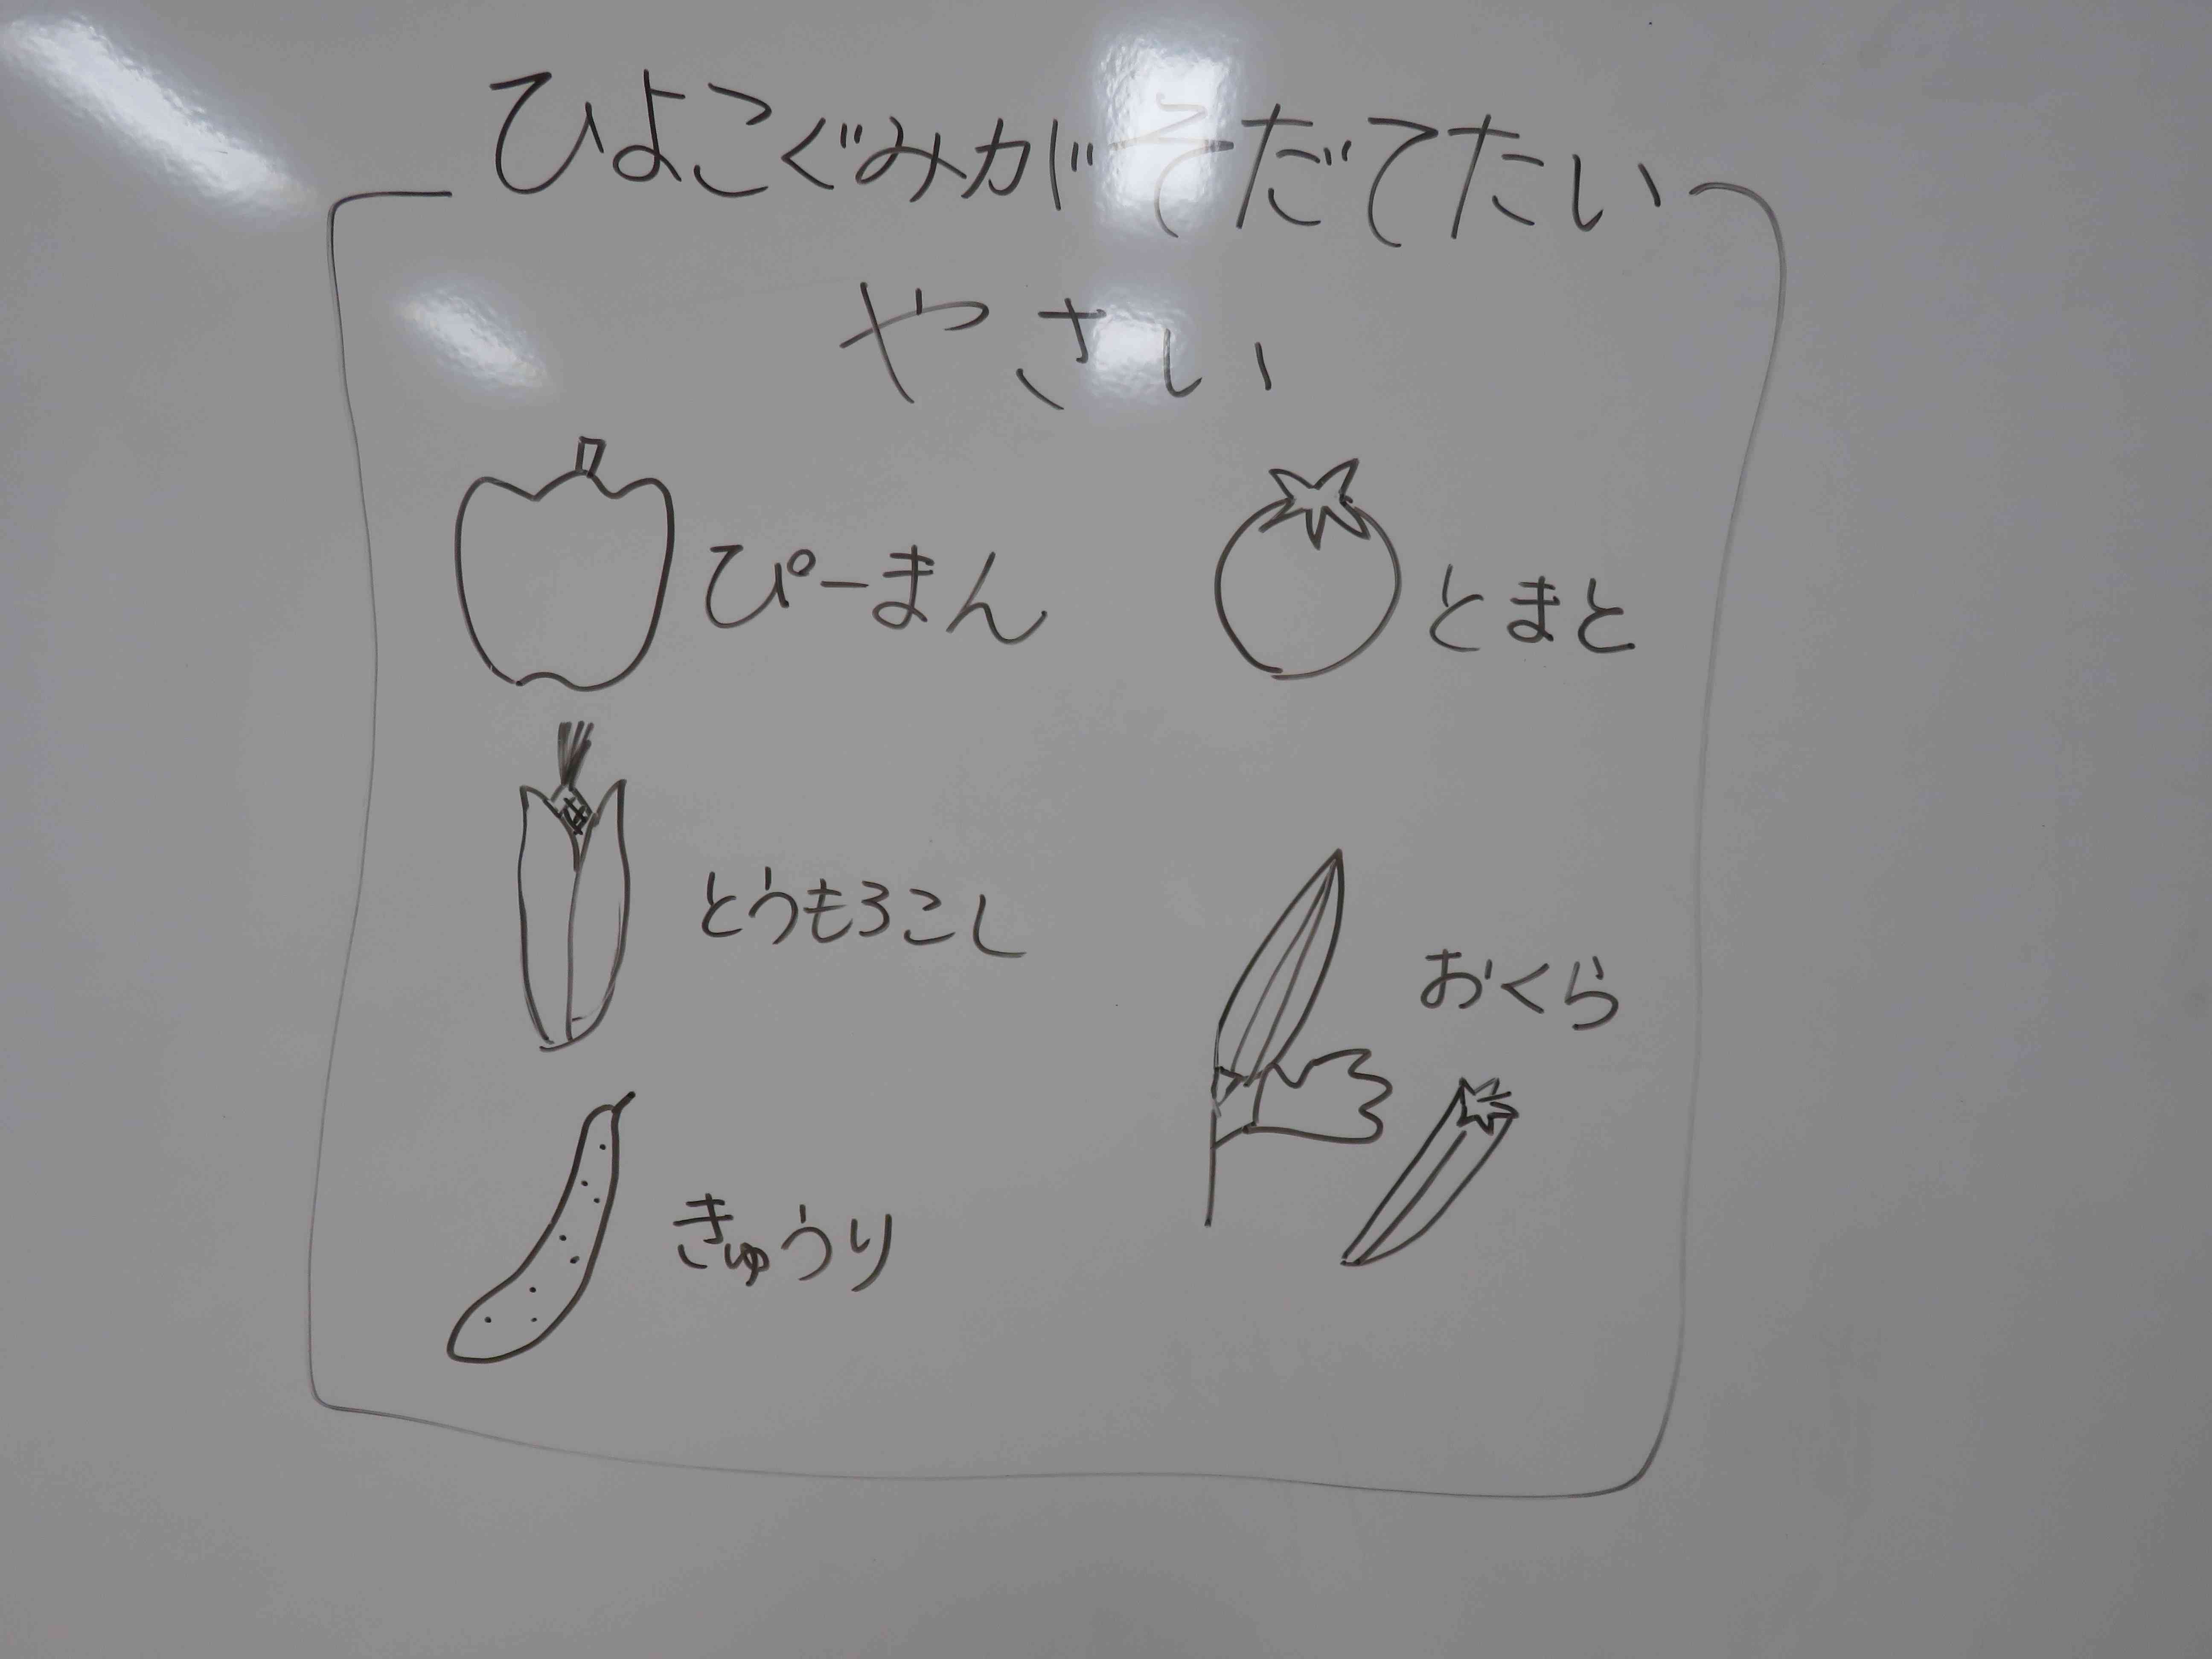 ひよこぐみがそだてたい
やさい
ぴーまん
とまと
とうもろこし
おくら
きゅうり